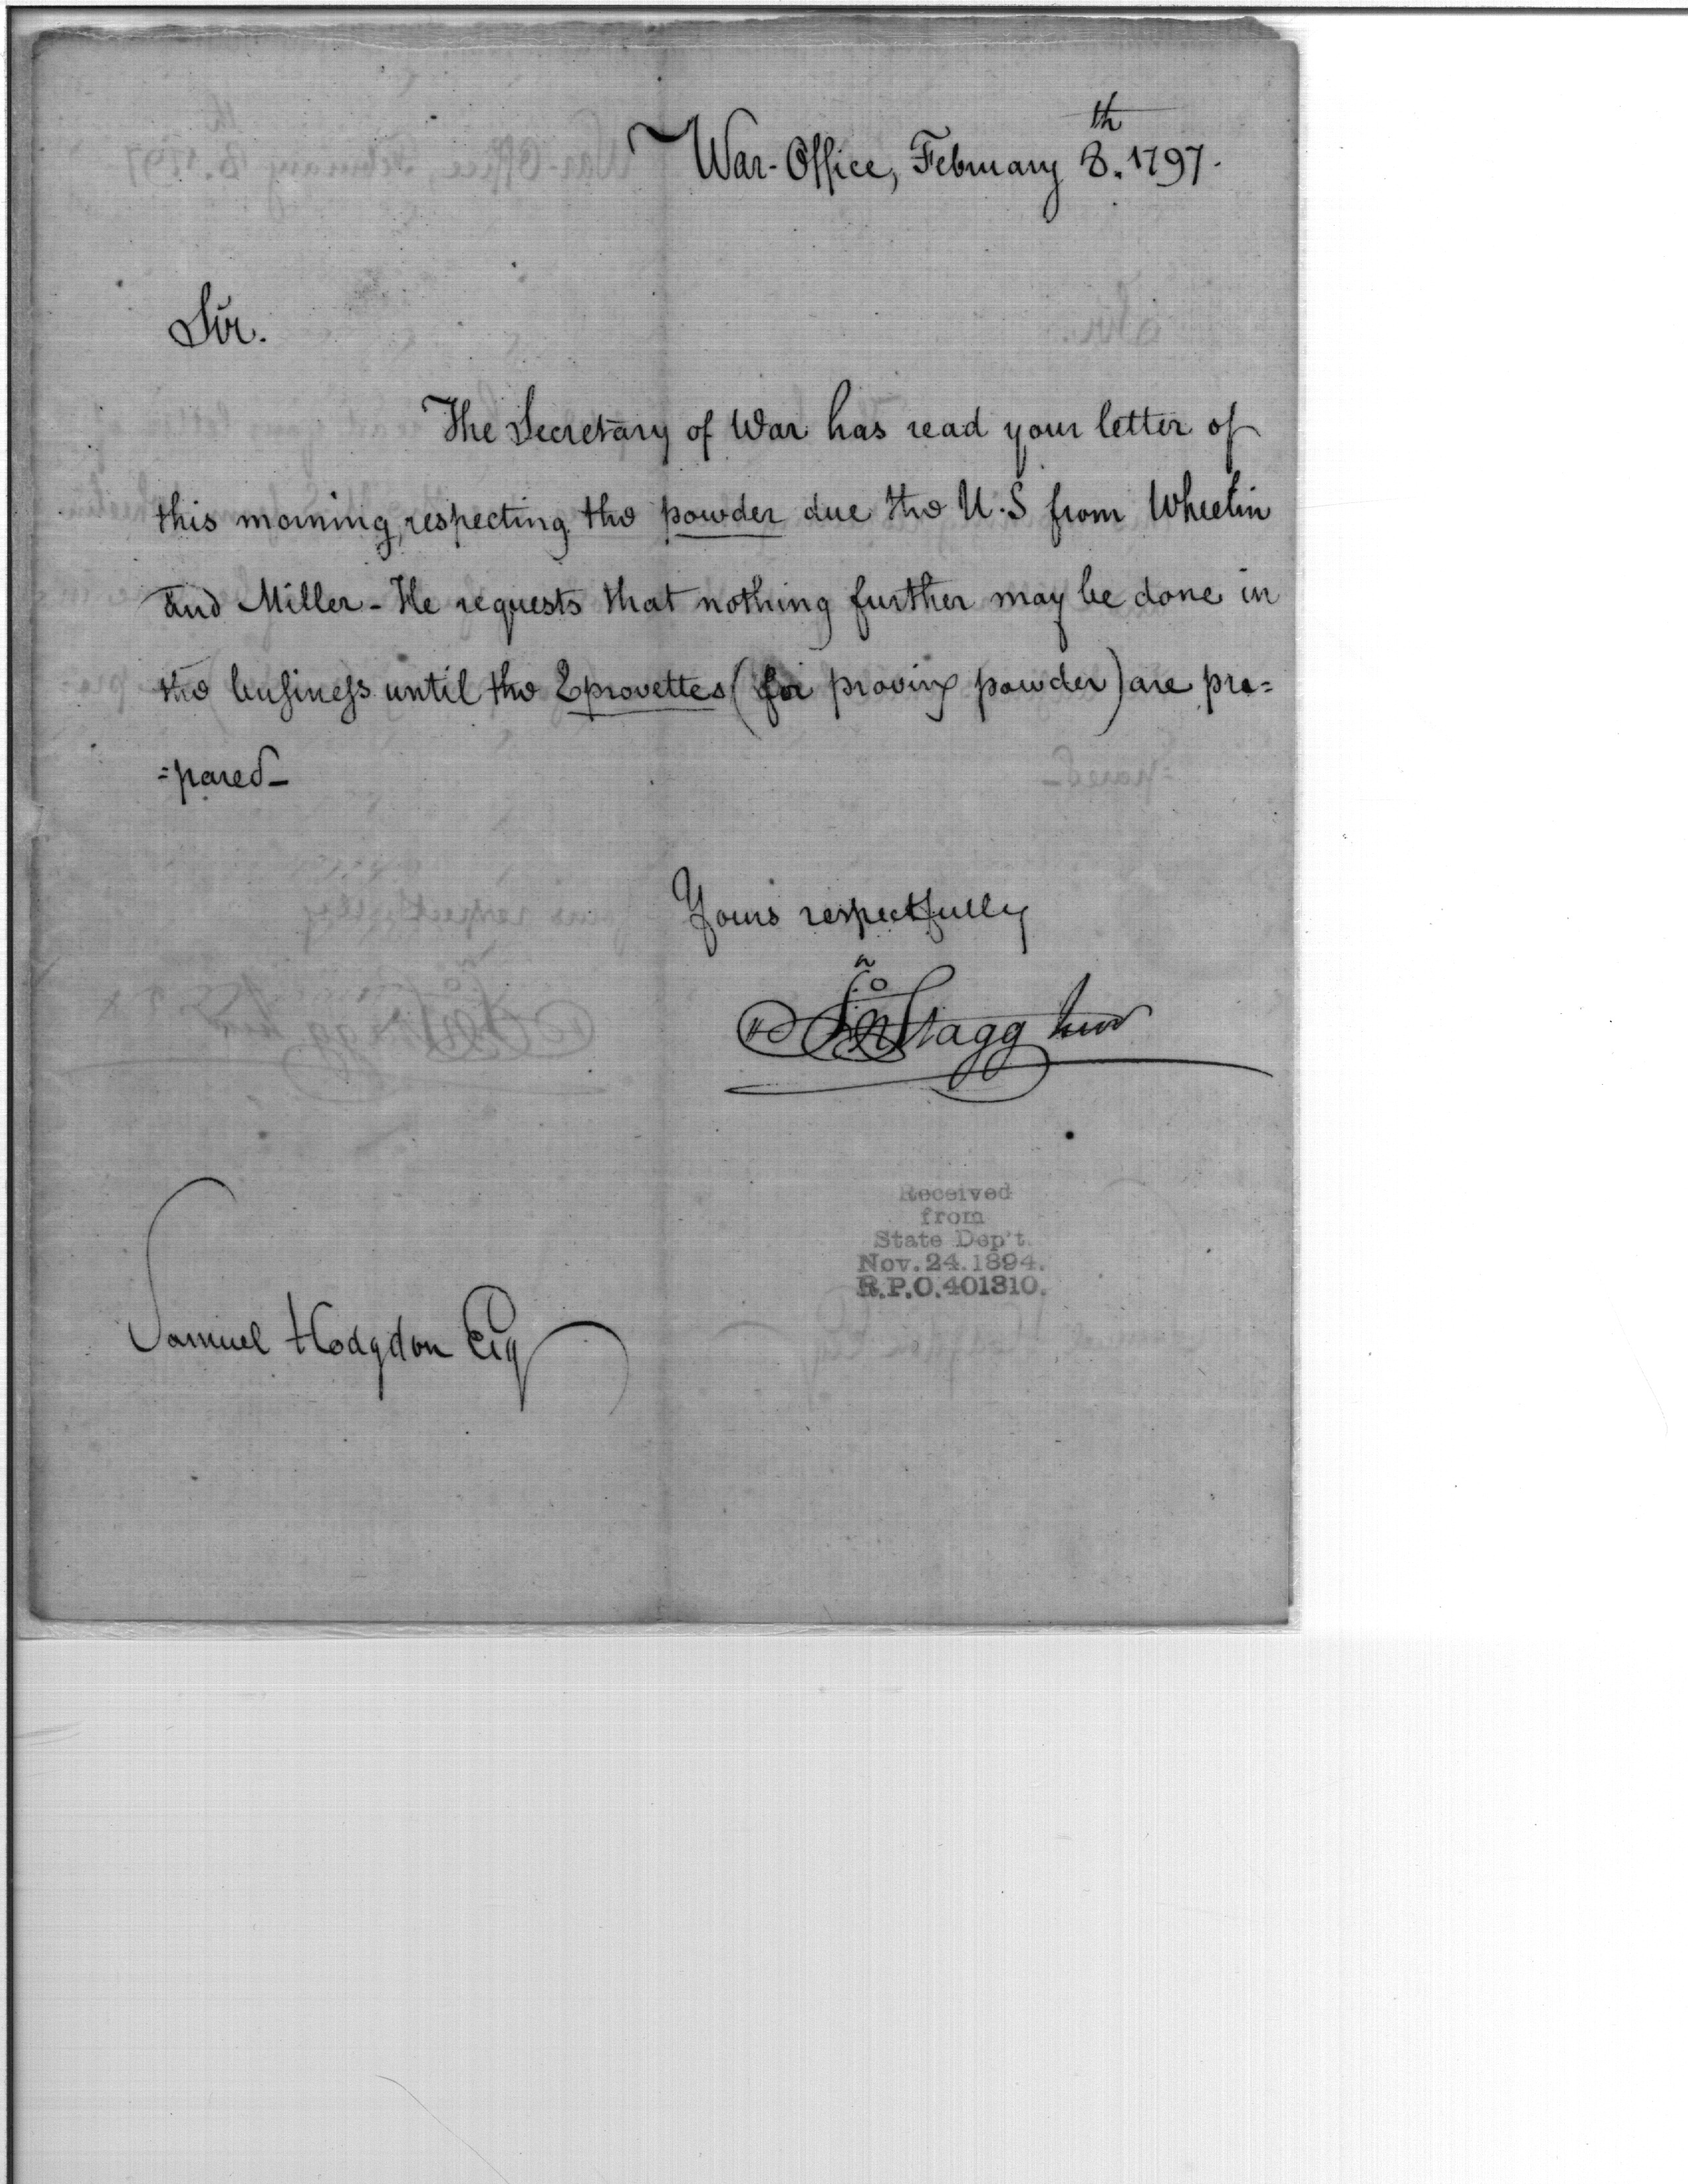 War-Office, February 8.th 1797.
Sir.
The Secretary of War has read your letter of
this morning, respecting the powder due the U.S from Wheelin
and Miller - He requests that nothing further may be done in
the business until the Eprovettes (for proving powder) are pre=
=pared_
Yours respectfully
Jno Stagg Junr
Received
from
State Dep't.
Nov. 24. 1894.
R.P.O. 401310.
Samuel Hodgdon Esq